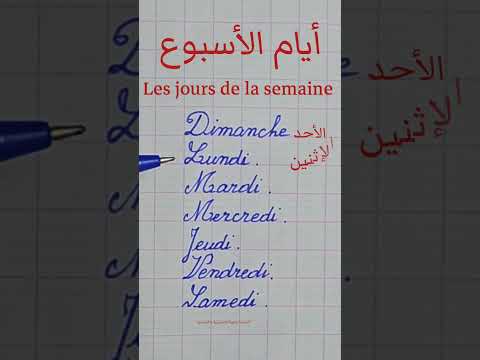 أيام الأسبوع
Les jours de la semaine
Dimanche الأحد
Lundi. الإثنين
Mardi.
Mercredi.
Jeudi.
Vendredi.
Samedi.